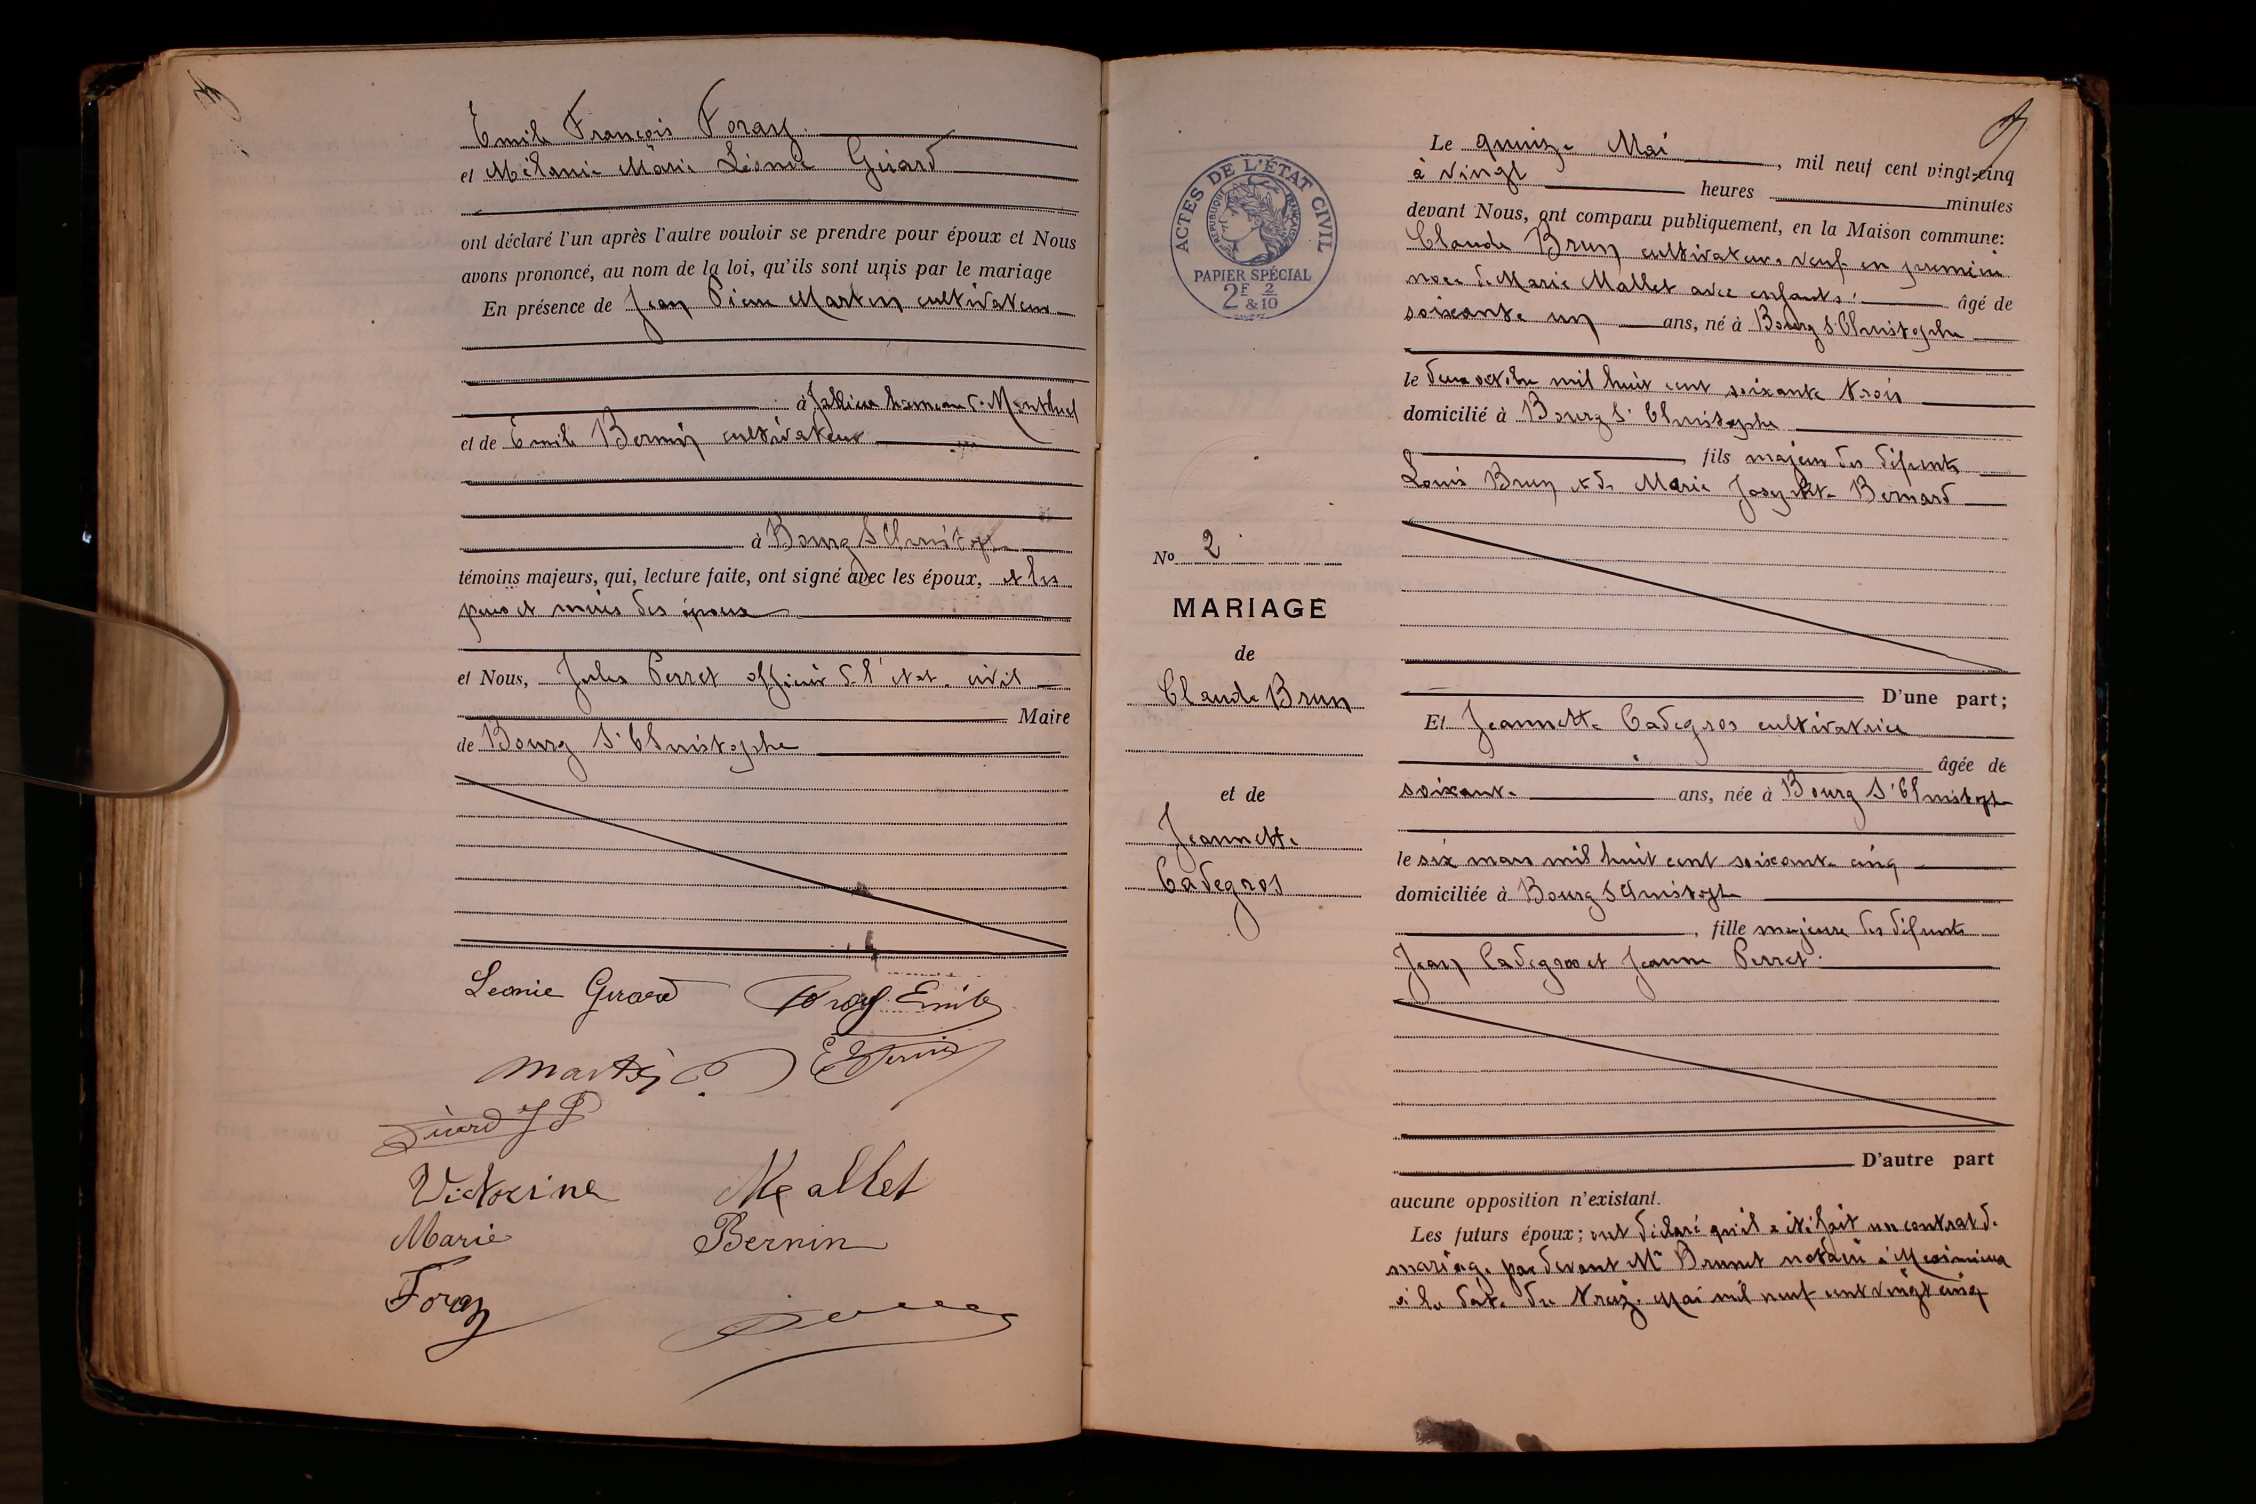 Emile François Foray
et Mélanie Marie Léonie Girard
ont déclaré l'un après l'autre vouloir se prendre pour époux et Nous
avons prononcé, au nom de la loi, qu'ils sont unis par le mariage
En présence de Jean Pierre Martin cultivateur
à Jailleux hameau de Montluel
et de Emile Bernin cultivateur
à Bourg St Christophe
témoins majeurs, qui, lecture faite, ont signé avec les époux, et les
pères et mères des époux
et Nous, Jules Perret officier de l'état civil
Maire
de Bourg St Christophe
Leonie Girard Foray Emile
Martin E Bernin
Girard J P
Victorine Mallet
Marie Bernin
Foray
Le quinze Mai, mil neuf cent vingt-cinq
à vingt heures minutes
devant Nous, ont comparu publiquement, en la Maison commune:
Claude Brun cultivateur, veuf en première
noce de Marie Mallet avec enfants. âgé de
soixante un ans, né à Bourg St Christophe
le deux octobre mil huit cent soixante trois
domicilié à Bourg St Christophe
fils majeur des défunts
Louis Brun et de Marie Josephte Bernard
D'une part;
Et Jeannette Cadegros cultivatrice
âgée de
soixante ans, née à Bourg St Christophe
le six mars mil huit cent soixante cinq
domiciliée à Bourg St Christophe
, fille majeure des défunts
Jean Cadegros et Jeanne Perret.
D'autre part
aucune opposition n'existant.
Les futurs époux; ont déclaré qu'il a été fait un contrat de
mariage par devant Me Brunet notaire à Meximieux
à la date du treize Mai mil neuf cent vingt cinq
ACTES DE L'ÉTAT CIVIL
RÉPUBLIQUE FRANÇAISE
PAPIER SPÉCIAL
2F 2
&10
No 2
MARIAGE
de
Claude Brun
et de
Jeannette
Cadegros